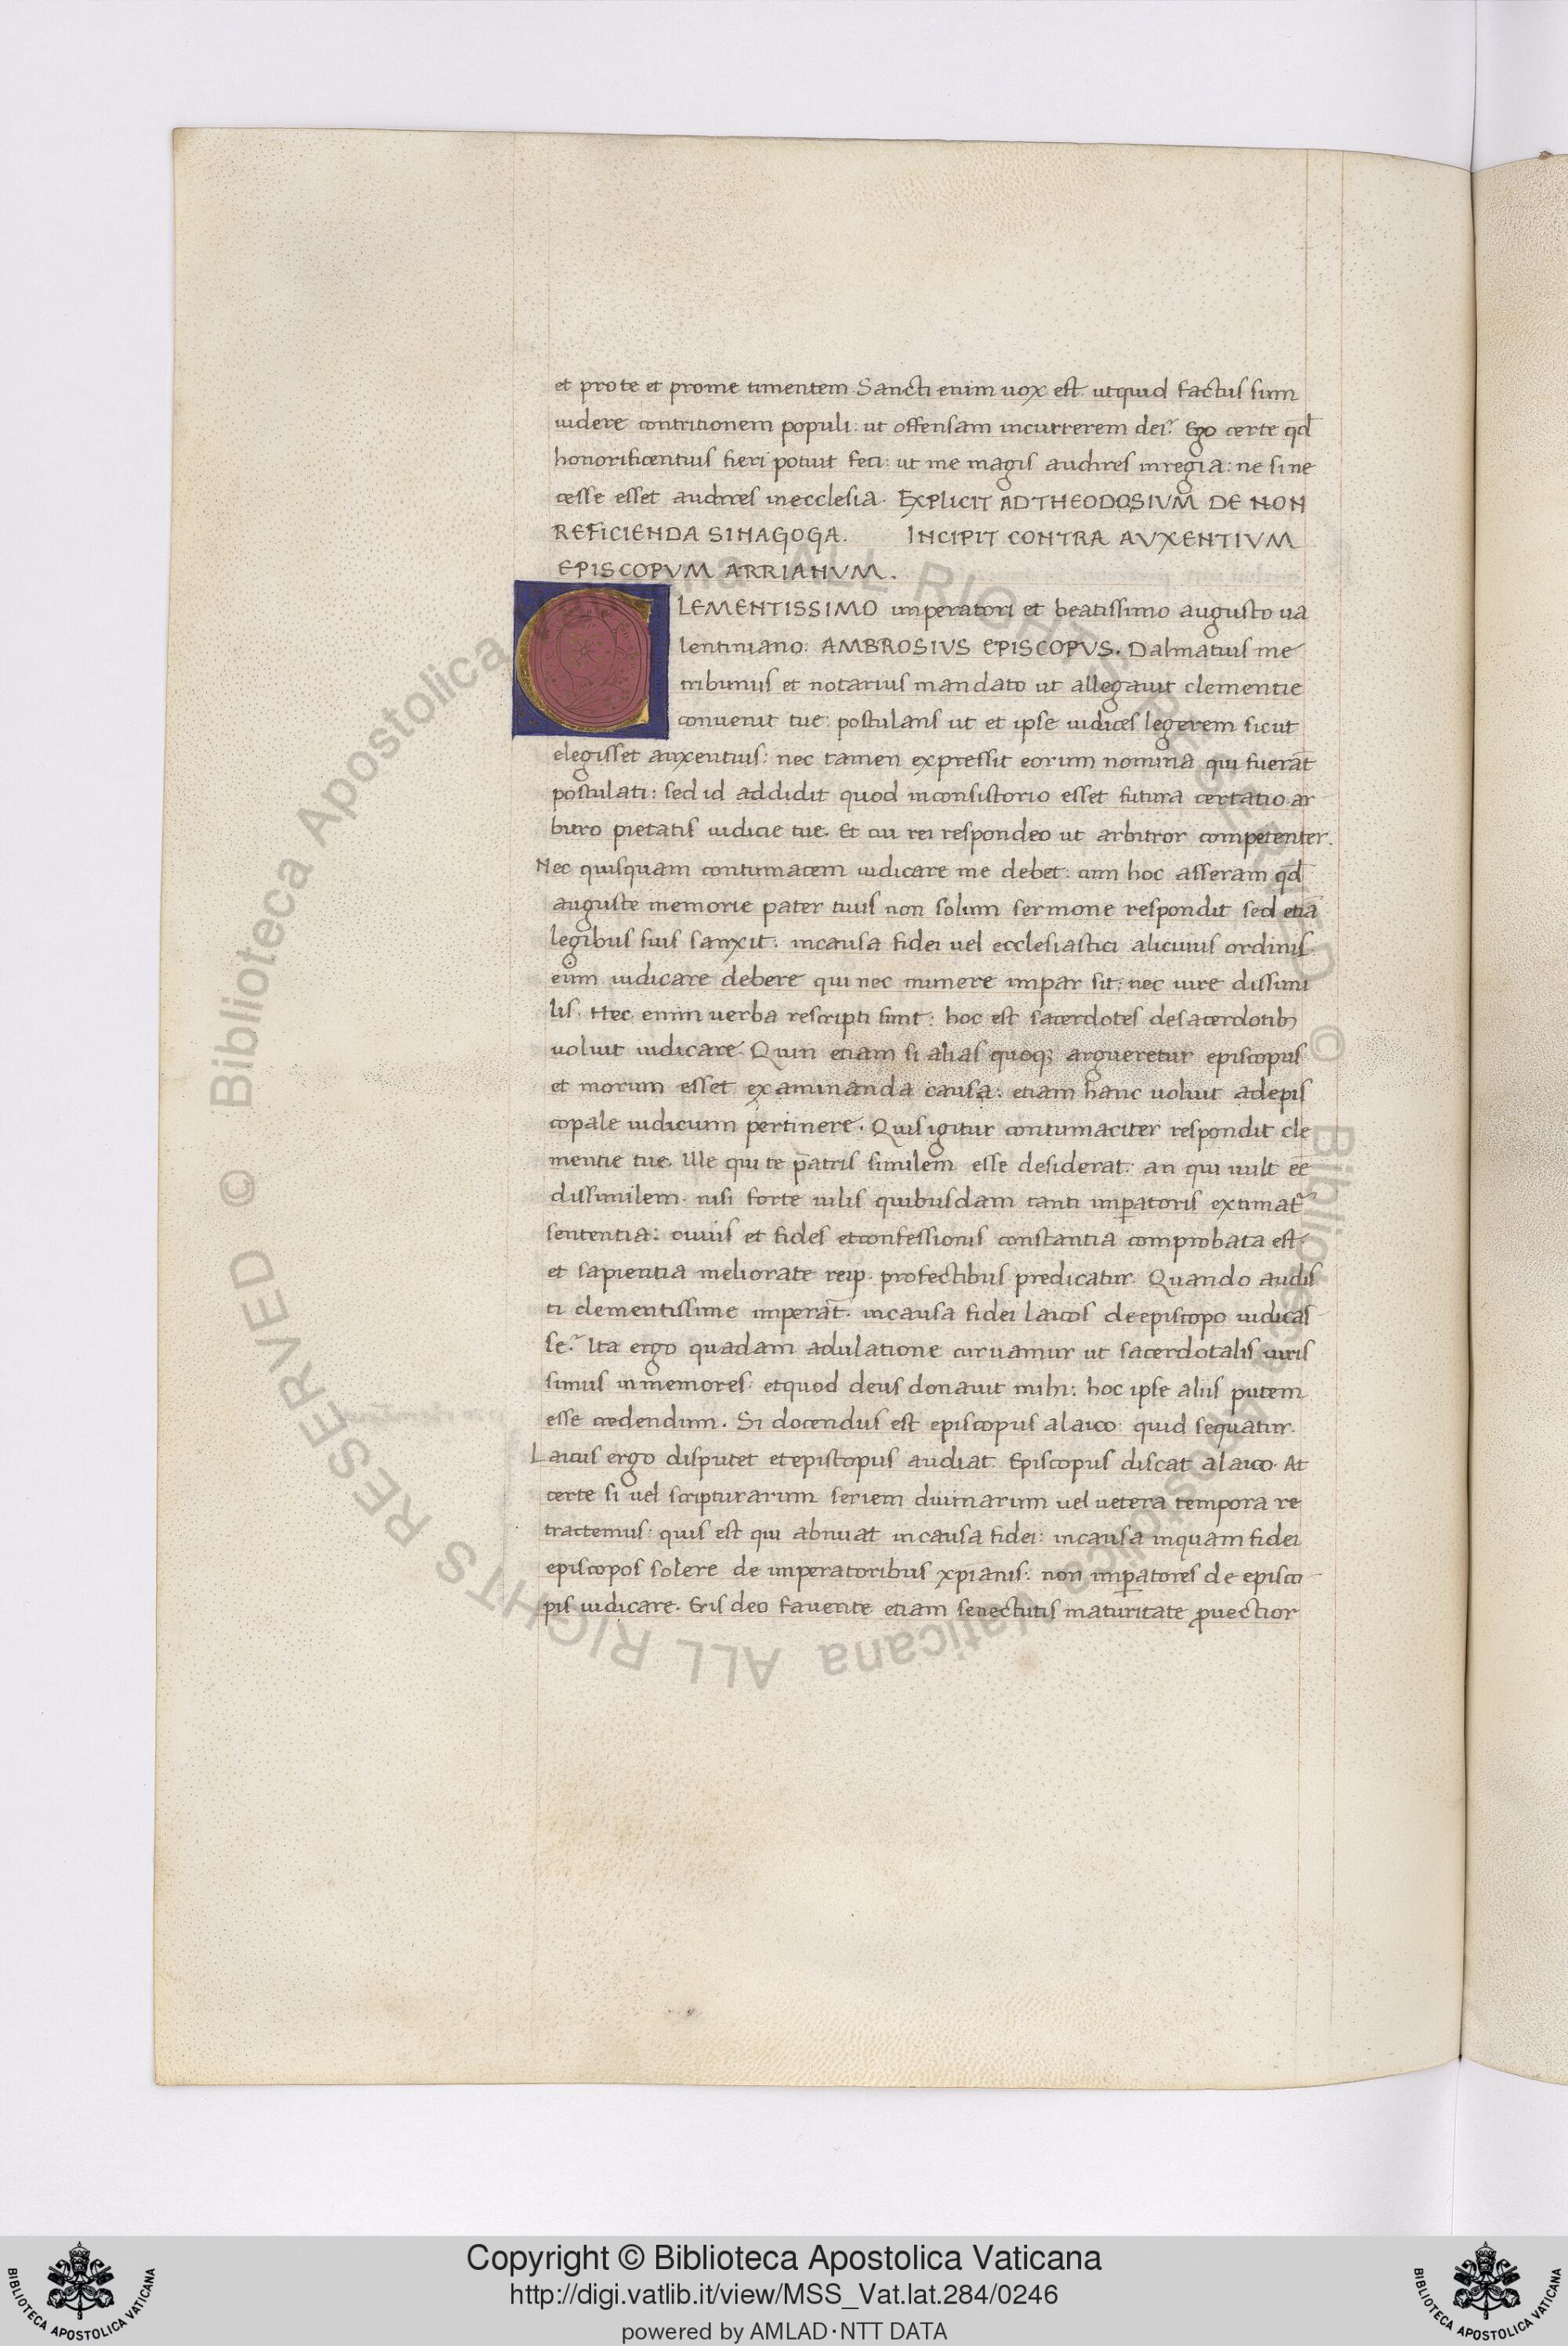 et pro te et prome timentem. Sancti enim uox est. utquid factus sum
uidere contritionem populi: ut offensam incurrerem dei? Ego certe qd̄
honorificentius fieri potuit feci: ut me magis audires inregia: ne si ne
cesse esset audires inecclesia. EXPLICIT AD THEODOSIVM DE NON
REFICIENDA SINAGOGA. INCIPIT CONTRA AVXENTIVM
EPISCOPVM ARRIANVM.
CLEMENTISSIMO imperatori et beatissimo augusto ua
lentiniano: AMBROSIVS EPISCOPVS. Dalmatius me
tribunus et notarius mandato ut allegauit clementie
conuenit tue: postulans ut et ipse iudices legerem sicut
elegisset auxentius: nec tamen expressit eorum nomina qui fuerāt
postulati: sed id addidit quod inconsistorio esset futura certatio ar
bitro pietatis iudicie tue. Et cui rei respondeo ut arbitror competenter.
Nec quisquam contumacem iudicare me debet. cum hoc asseram qd̄
auguste memorie pater tuus non solum sermone respondit sed etiā
legibus suis sanxit. incausa fidei uel ecclesiastici alicuius ordinis
eum iudicare debere qui nec munere impar sit: nec iure dissimi
lis. Hec enim uerba rescripti sunt: hoc est sacerdotes desacerdotib;
uoluit iudicare. Quin etiam si alias quoq; argueretur episcopus
et morum esset examinanda causa: etiam hanc uoluit adepis
copale iudicium pertinere. Quis igitur contumaciter respondit cle
mentie tue. Ille qui te patris similem esse desiderat. an qui uult eē
dissimilem. nisi forte uilis quibusdam tanti imp̄atoris extimat̄
sententia: cuius et fides etconfessionis constantia comprobata est
et sapientia meliorate reip. profectibus predicatur. Quando audis
ti clementissime imperat̄. incausa fidei laicos deepiscopo iudicas
se? Ita ergo quadam adulatione curuamur ut sacerdotalis iuris
simus inmemores. etquod deus donauit mihi: hoc ipse aliis putem
esse credendum. Si docendus est episcopus alaico: quid sequatur.
Laicus ergo disputet etepiscopus audiat. Episcopus discat alaico. At
certe si uel scripturarum seriem diuinarum uel uetera tempora re
tractemus: quis est qui abnuat incausa fidei: incausa inquam fidei
episcopos solere de imperatoribus xp̄ianis: non imp̄atores de episco
pis iudicare. Eris deo fauente etiam senectutis maturitate ꝓuectior
© Biblioteca Apostolica Vaticana ALL RIGHTS RESERVED
© Biblioteca Apostolica Vaticana ALL RIGHTS RESERVED
Copyright © Biblioteca Apostolica Vaticana
http://digi.vatlib.it/view/MSS_Vat.lat.284/0246
powered by AMLAD·NTT DATA
BIBLIOTECA APOSTOLICA VATICANA
BIBLIOTECA APOSTOLICA VATICANA